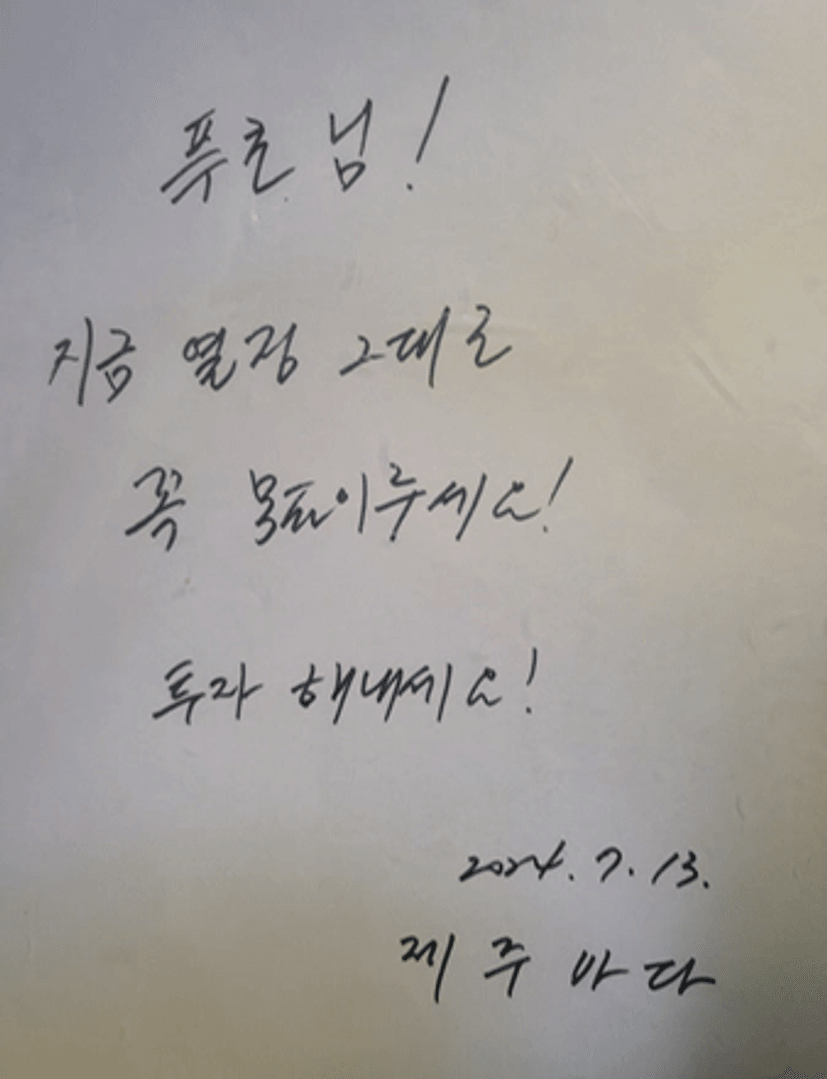 푸흐님!
지금 열정 그대로
꼭 목표이루세요!
투자 해내세요!
2024. 7. 13.
제주바다